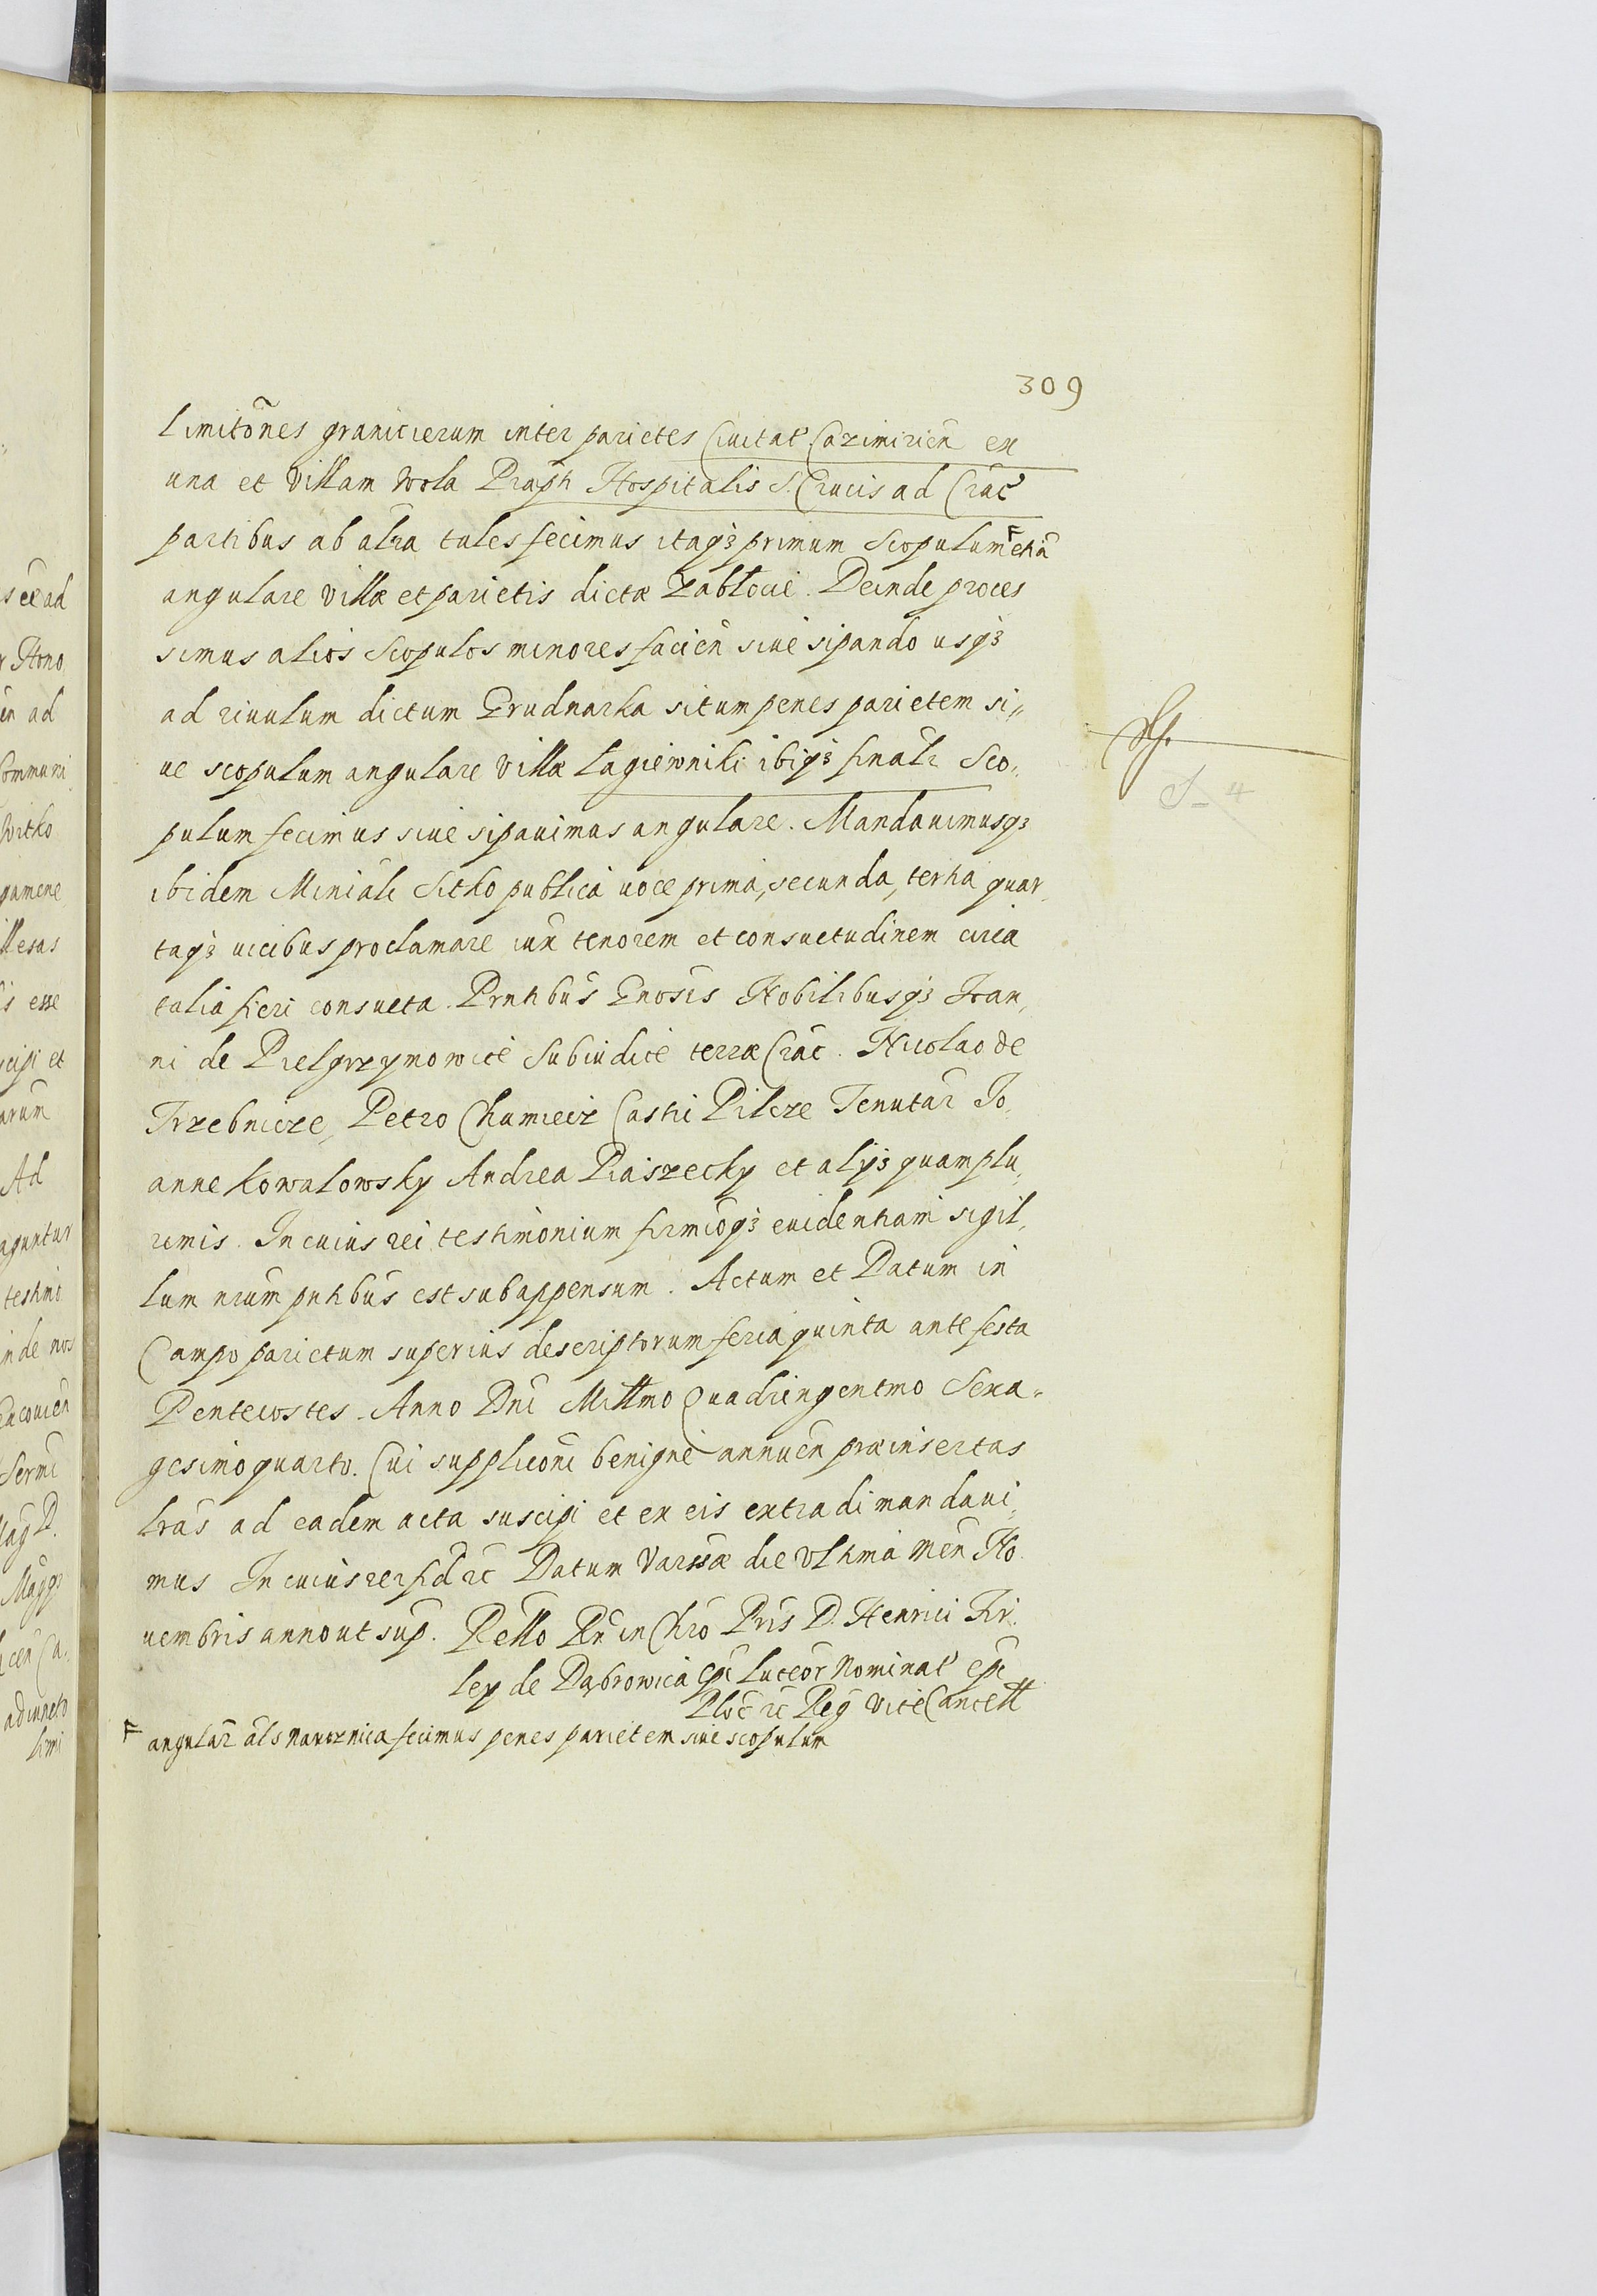 309
Limitões granicierum inter parietes Civitat Cazimirien̄ ex
una et Villam Wola Præph Hospitalis S. Crucis ad Crac̄
partibus ab alr̄a tales fecimus itaqȝ primum Scopulum etiā
angulare villæ et parietis dictæ Zablocie. Deinde proces
simus alios Scopulos minores facien̄ sive sipando usqȝ
ad rivulum dictum Brudnarka situm penes parietem si„
ve scopulum angulare villæ Lagiewniki ibiqȝ finale Sco„
pulum fecimus sive sipavimus angulare. Mandavimusqȝ
ibidem Miniali Sitko publica voce prima, secunda, tertia quar„
taqȝ vicibus proclamare iux̄ tenorem et consuetudinem circa
talia fieri consueta. Prn̄tibus Gnosis Nobilibusqȝ Ioan„
ni de Pielgrzymowice Subiudice terræ Crac̄. Nicolao de
Trzebnicze, Petro Chamiecz Castri Pilcze Tenutar̄ Io„
anne Kowalowsky Andrea Piaszecky et alijs quamplu„
rimis. In cuius rei testimonium firmioq̄ȝ evidentiam sigil„
lum nrūm pn̄tibus est subappensum. Actum et Datum in
Campo parietum superius descriptorum feria quinta ante festa
Pentecostes. Anno Dn̄i Millmo Quadringentmo Sexa„
gesimo quarto. Cui supplicōni benigne annuen̄ præinsertas
lr̄as ad eadem acta suscipi et ex eis extradi mandavi„
mus In cuius rei fid̄ rc̄ Datum Varssæ die Ultima Men̄ No„
vembris anno ut sup. Rello Rn̄ in Chrō Pris D. Henrici Fir„
ley de Dąbrowica Epī Luceor̄ Nominat Epī
Ploc̄ rc̄ Reg̃ Vice Cancell
F angular̄ al̄s narożnica fecimus penes parietem sive scopulum
S_ 4